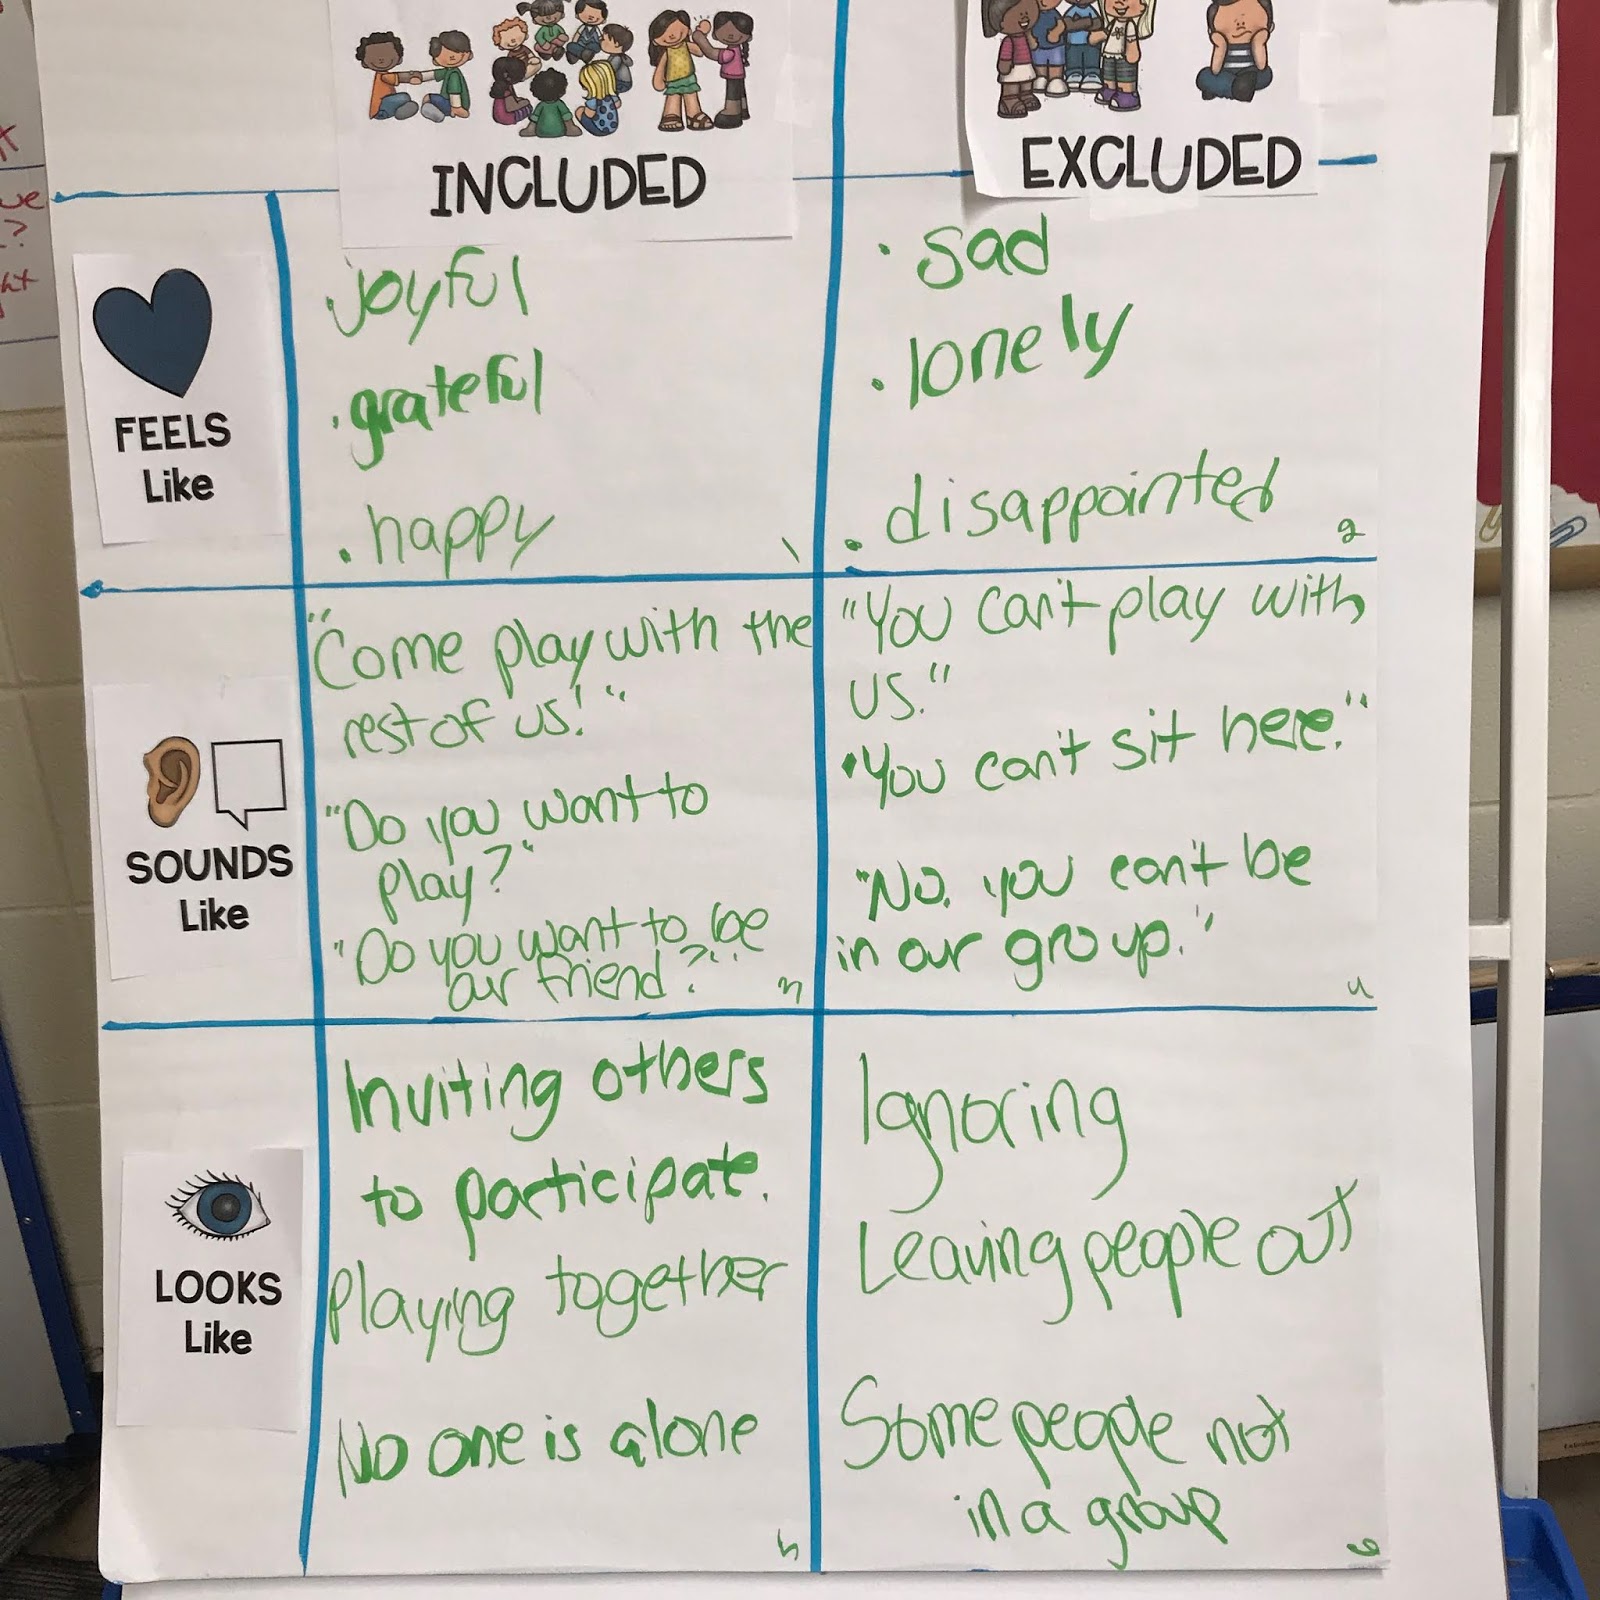 INCLUDED
EXCLUDED
FEELS
Like
.joyful
.grateful
.happy
1
. sad
. lonely
. disappointed
2
SOUNDS
Like
"Come play with the
rest of us!"
"Do you want to
play?"
"Do you want to be
our friend?"
3
"You can't play with
us."
"You can't sit here."
"No, you can't be
in our group."
4
LOOKS
Like
Inviting others
to participate.
Playing together
No one is alone
5
Ignoring
Leaving people out
Some people not
in a group
6